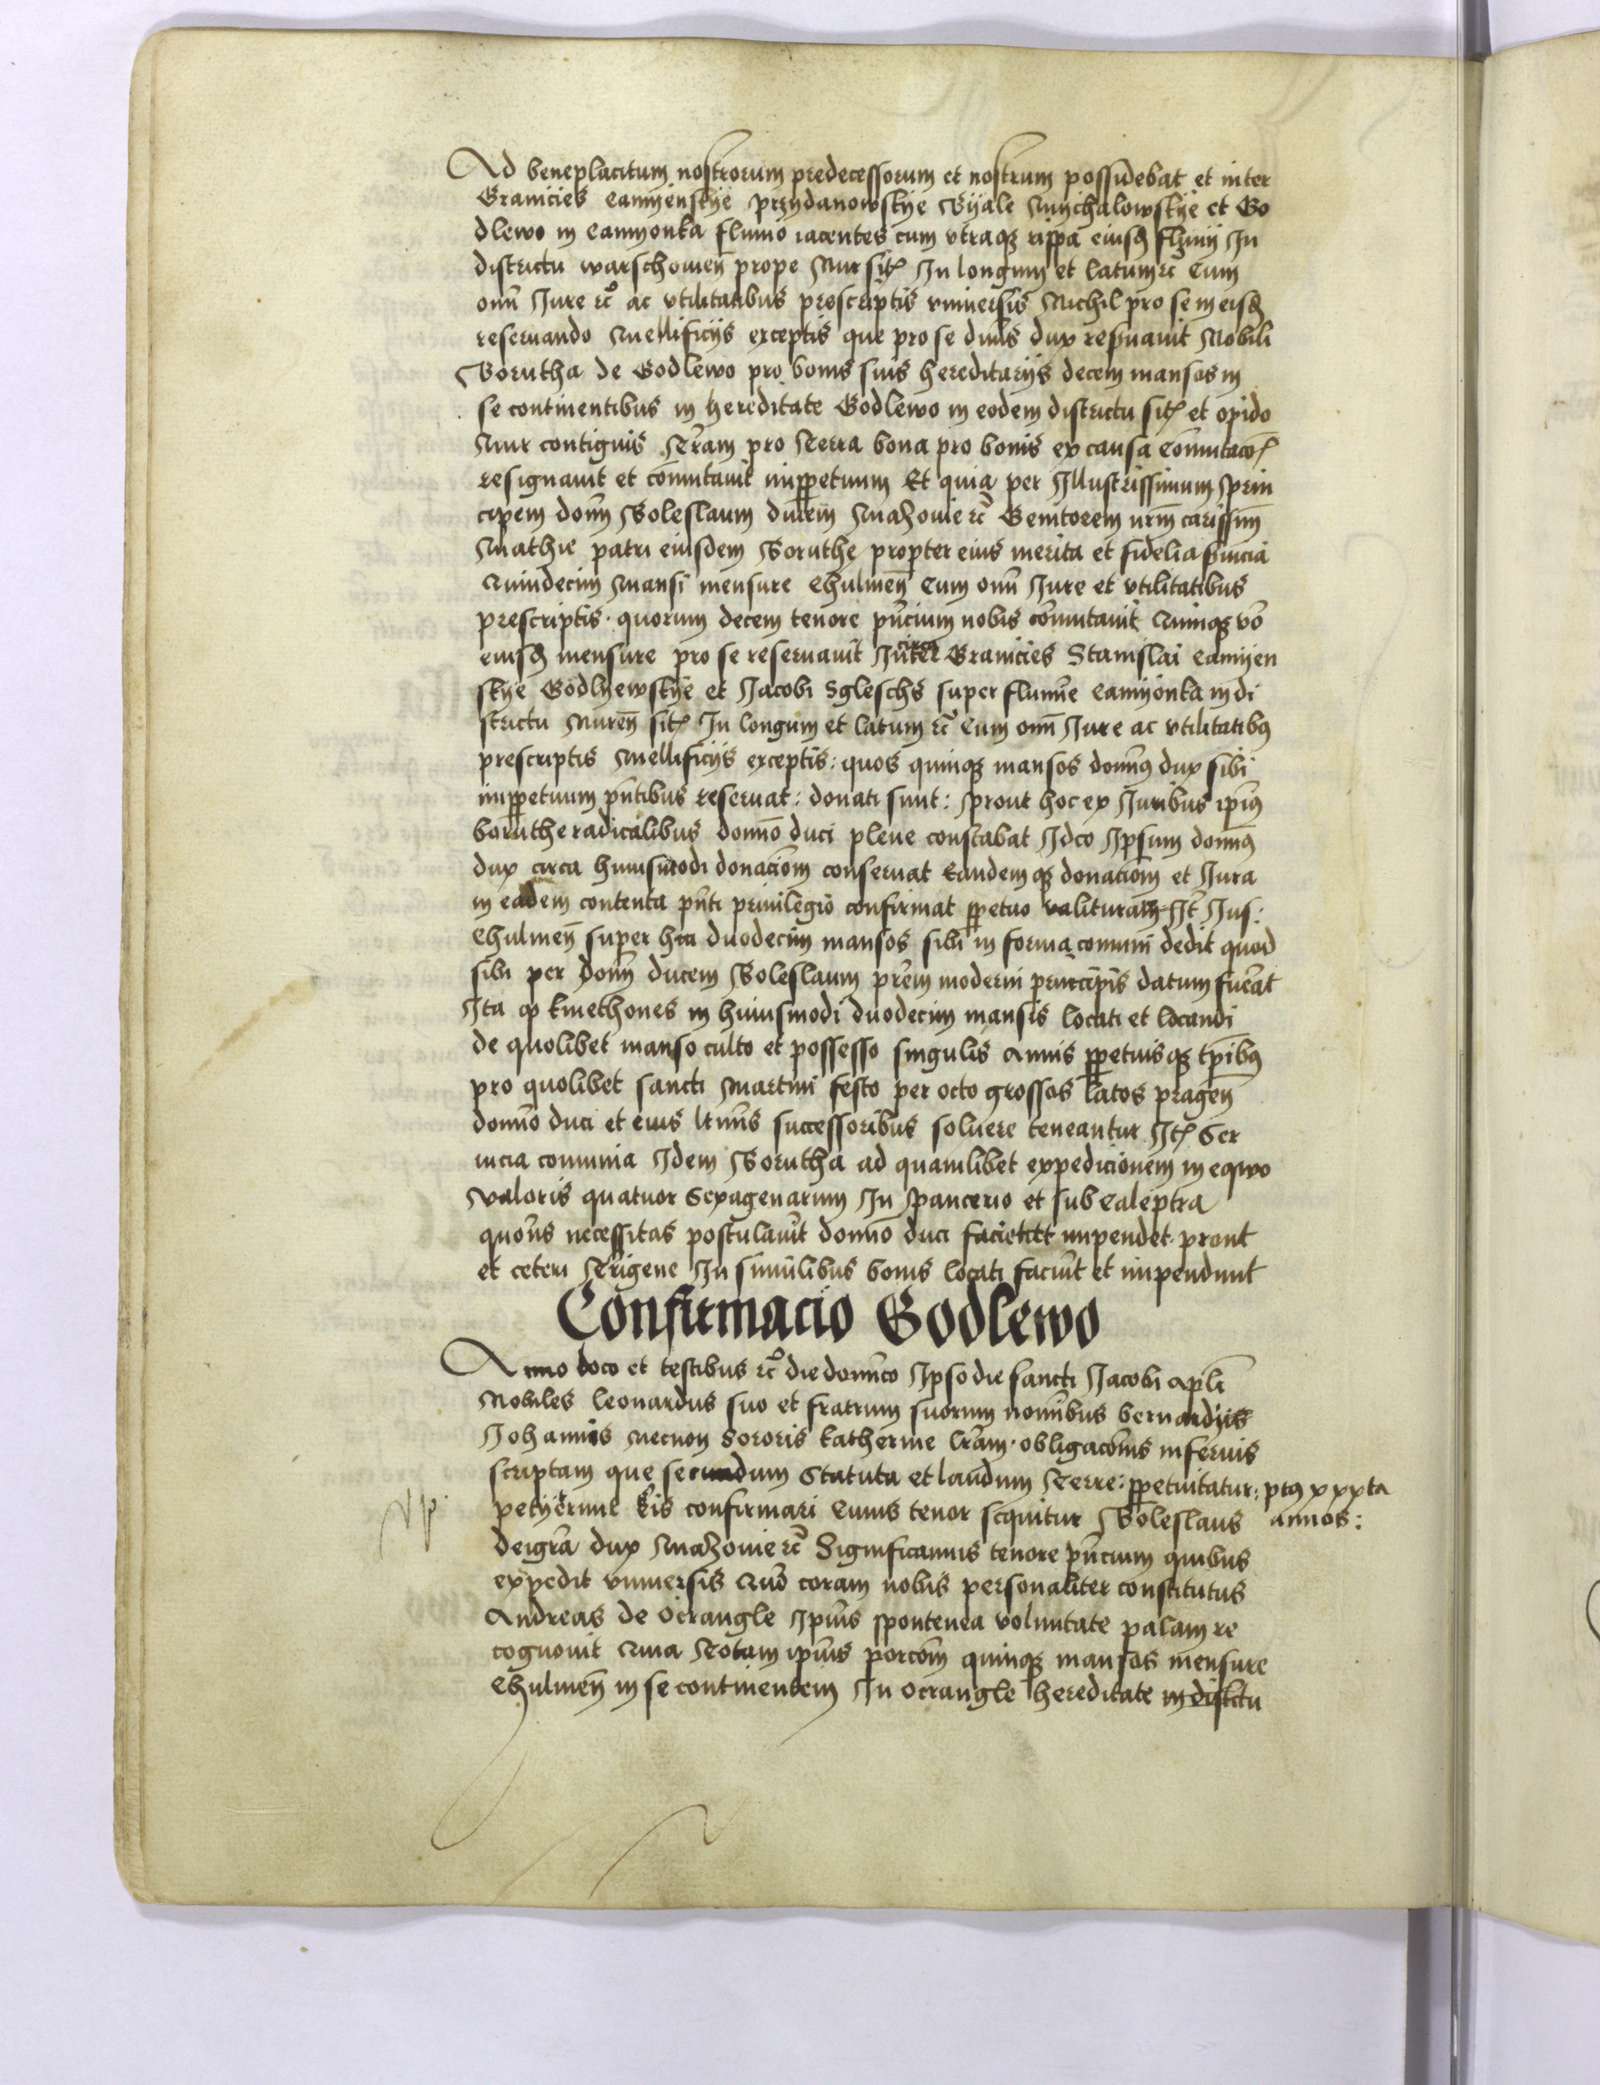 Ad beneplacitum nostrorum predecessorum et nostrum possidebat et inter
Granicies Camyenskye Przydanowskye Byale Mychalowskye et Go
dlewo in Camyonka fluuio iacentes cum vtraqz rippa eiusd fluuij In
districtu warschouien prope Mur sit In longum et latum rc Cum
omi Jure rc ac vtilitatibus prescriptis vniuersis Nichil pro se in eisd
reseruando Mellificijs exceptis que pro se dnus dux reseruauit Nobili
Borutha de Godlewo pro bonis suis hereditarijs decem mansos in
se continentibus in hereditate Godlewo in eodem districtu sit et opido
Mur contiguis Terram pro Terra bona pro bonis ex causa Comutacois
resignauit et comutauit imppetuum Et quia per Illustrissimum Prin
cipem domin Boleslaum ducem Mazouie rc Genitorem nrm carissim
Mathie patri eiusdem Boruthe propter eius merita et fidelia seruicia
Quindecim Mansi mensure Chulmen Cum omi Jure et vtilitatibus
prescriptis quorum decem tenore pncium nobis comutauit Quinqz vo
eiusd mensure pro se reseruauit Inter Granicies Stanislai Camyen
skye Godlyewskye et Jacobi Sgleschs super flumine Camyonka in di
strictu Muren sit In longum et latum rc Cum omi Jure ac vtilitatibus
prescriptis Mellificijs exceptis: quos quinqz mansos domnus dux sibi
imppetuum pntibus reseruat: donati sunt: Prout hoc ex Juribus ipius
boruthe radicalibus domno duci plene constabat Idco Ipsum domnus
dux circa huiusmodi donaciom conseruat Eandemqz donaciom et Jura
in eadem contenta pnti priuilegio confirmat ppetuo valituram It Jus:
Chulmen super hij duodecim mansos sibi in forma comuni dedit quod
sibi per domin ducem Boleslaum prem moderni principis datum fuerat
Ita q kmethones in huiusmodi duodecim mansis locati et locandi
de quolibet manso culto et possesso singulis Annis ppetuisqz tpibus
pro quolibet sancti Martini festo per octo grossos latos pragen
domno duci et eius ltimis successoribus soluere teneantur It Ser
uicia comunia Idem Borutha ad quamlibet expedicionem in eqwo
valoris quatuor Sexagenarum In Pancerio et sub Caleptra
quociens necessitas postulauit domno duci faciet impendet prout
et ceteri Terigene In similibus bonis locati faciunt et impendunt
Confirmacio Godlewo
Anno loco et testibus rc die domico Ipso die sancti Jacobi apli
Nobiles leonardus suo et fratrum suorum nominibus bernardyis
Johannis Necnon Sororis katherine lram obligacois inferius
scriptam que secundum Statuta et laudum Terre: ppetuitatur: ptus xxxta
annos:
petyerunt confirmari Cuius tenor sequitur Boleslaus
dei gra dux Mazouie rc Significamus tenore pncium quibus
expedit vniuersis Quo coram nobis personaliter constitutus
Andreas de Ocrangle Ipius spontenea voluntate palam re
cognouit Quia Totam ipius porcom quinqz mansos mensure
Chulmen in se continentem In Ocrangle hereditate in distctu